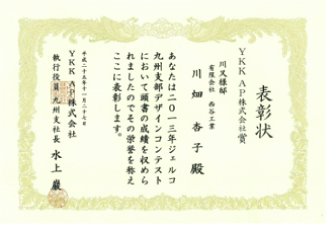 表彰状
YKK AP株式会社賞
川又様邸
有限会社 西谷工業
川畑 杏子 殿
あなたは二〇一三年ジェルコ
九州支部デザインコンテスト
において頭書の成績を収めら
れましたのでその栄誉を称え
ここに表彰します。
平成二十五年十一月二十七日
YKK AP株式会社
執行役員 九州支社長 水上 巌